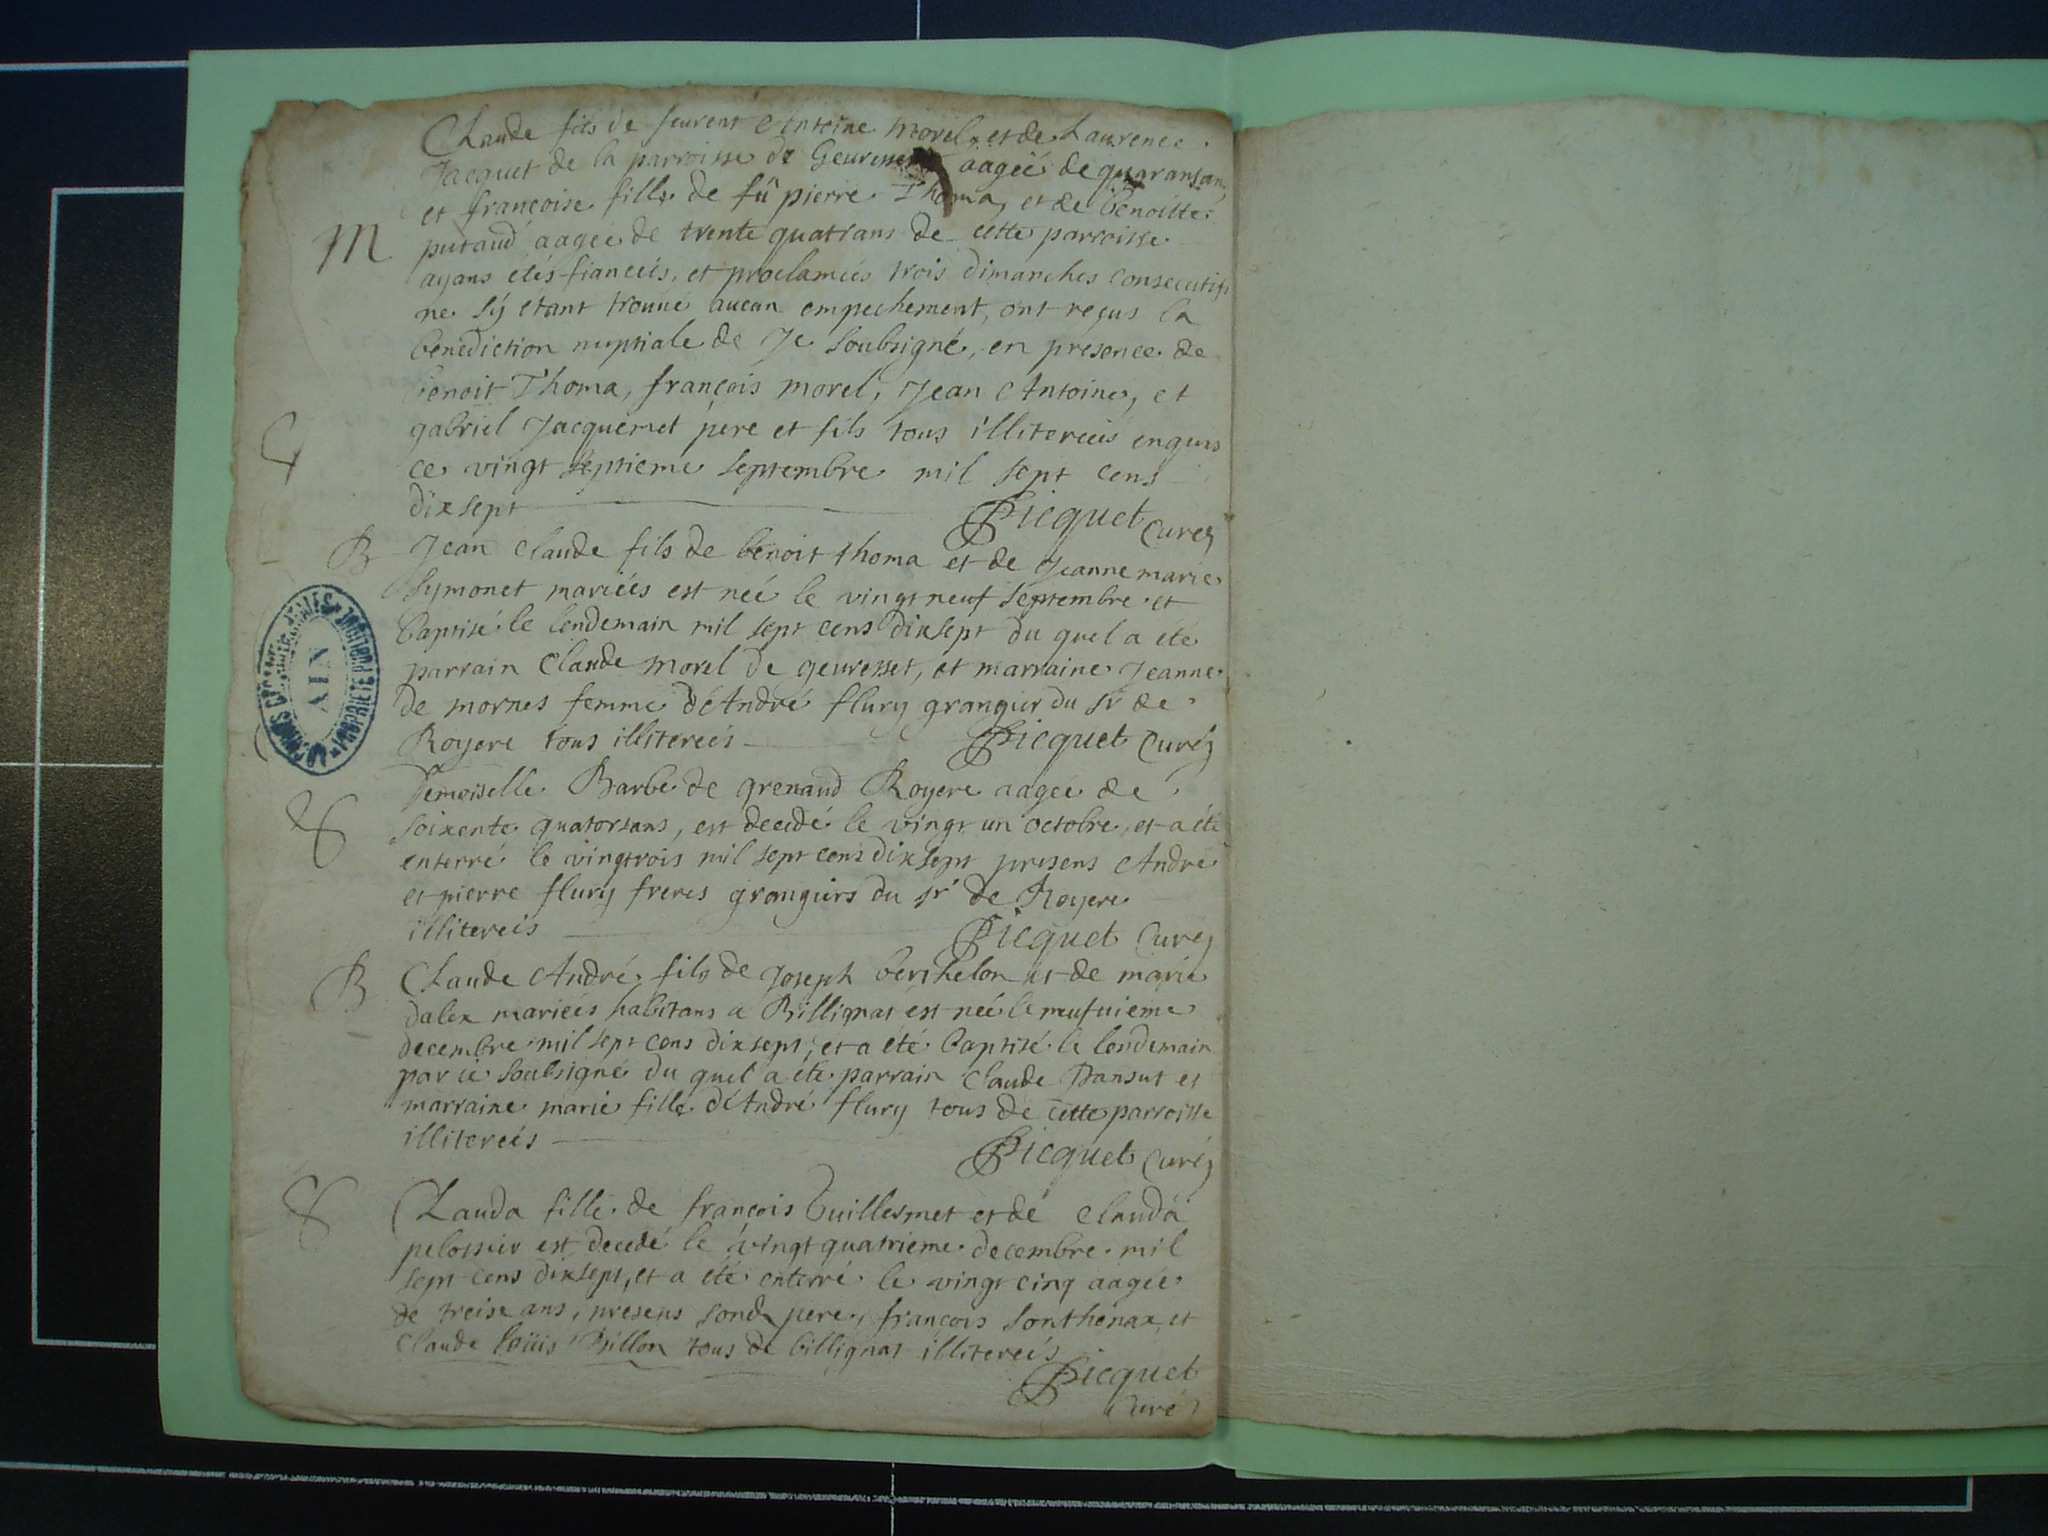 Claude fils de feurent Antoine morel, et de Laurence
Jacquet de la parroisse de Geuresset aagéé de quaransans
et françoise fille de fû pierre Thoma, et de benoitte
putaud aagee de trente quatrans de cette parroisse
M
ayans étés fianceés, et proclameés trois dimanches consecutifs
ne sÿ etant trouué aucun empechement, ont reçus la
benediction nuptiale de Je soubsigné, en presence de
benoit Thoma, françois morel, Jean Antoine, et
gabriel Jacquemet pere et fils tous illitereés enquis
ce vingt septieme septembre mil sept cens
dixsept
Picquet Curéz
B
Jean Claude fils de benoit thoma et de Jeanne marie
Symonet marieés est neé le vingt neuf septembre et
baptisé le lendemain mil sept cens dixsept du quel a eté
parrain Claude morel de geuresset, et marraine Jeanne
de mornes femme d'André flury grangier du sr de
Royere tous illitereés
Picquet Curéz
ARCHIVES DEPARTEMENTALES PROPRIETE PUBLIQUE
AIN
Demoiselle Barbe de grenaud Royere aageé de
soixente quatorsans, est decedé le vingt un octobre, et a été
enterré le vingtrois mil sept cens dixsept presens André
et pierre flury freres grangiers du sr de Royere
illitereés
Picquet Curéz
B
Claude André fils de Joseph berthelon et de marie
dalex marieés habitans a Billignat est neé le neufuieme
decembre mil sept cens dixsept, et a eté baptisé le lendemain
par ie soubsigné du quel a eté parrain Claude Dansut et
marraine marie fille d'André flury tous de cette parroisse
illitereés
Picquet Curéz
Clauda fille de françois Guillermet et de Clauda
pelossier est decedé le vingt quatrieme decembre mil
sept cens dixsept, et a eté enterré le vingt cinq aageé
de treise ans, presens sond pere, françois Sonthonax, et
Claude loüis Billon tous de billignat illitereés
Picquet
Curé